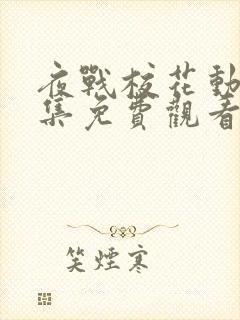 夜戰校花動
集免費觀看
笑煙寒